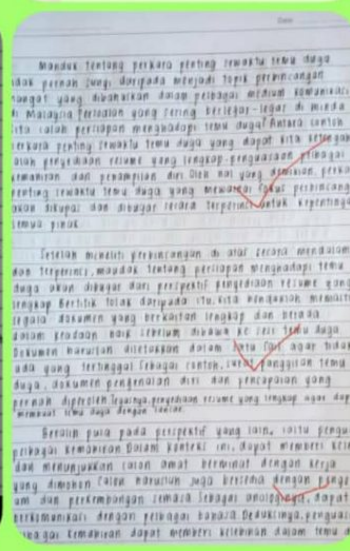 Date
Mauduk tentang perkara penting sewaktu temu duga
idak pernah sunyi daripada menjadi topik perbincangan
hangat yang dibahaskan dalam pelbagai medium komunikasi
di Malaysia. Persoalan yang sering berlegar-legar di minda
kita ialah persiapan menghadapi temu duga? Antara contoh
perkara penting sewaktu temu duga yang dapat kita ketengah
ialah penyediaan resume yang lengkap, penguasaan pelbagai
kemahiran dan penampilan diri. Oleh hal yang demikian, perka
penting sewaktu temu duga yang mewarnai fokus perbincang
akan dikupas dan dibugar secara terperinci untuk kepenting
semua pihak.
Setelah meneliti perbincangan di atas secara mendalam
dan terperinci, maudak tentang persiapan menghadapi temu
duga akan dibugar dari perspektif penyediaan resume yang
lengkap. Bertitik tolak daripada itu, kita
segala dokumen yang berkaitan lengkap dan berada
dalam keadaan baik sebelum dibawa ke sesi temu duga.
Dokumen haruslah diletakkan dalam satu fail agar tidak
ada yang tertinggal. Sebagai contoh, surat panggilan temu
duga, dokumen pengenalan diri dan pencapaian yang
pernah diperoleh. Tegasnya, penyediaan resume yang lengkap agar dap
membuat temu duga dengan lancar.
Beralih pula pada perspektif yang lain, iaitu pengua
pelbagai kemahiran. Dalam konteks ini, dapat memberi
dan menunjukkan calon amat berminat dengan kerja
yang dimohon. Calon haruslah juga bersedia dengan
um dan perkembangan semasa. Sebagai analoginya, dapat
berkomunikasi dengan pelbagai bahasa. Deduksinya, penguas
lbagai kemahiran dapat memberi kelebihan dalam temu d